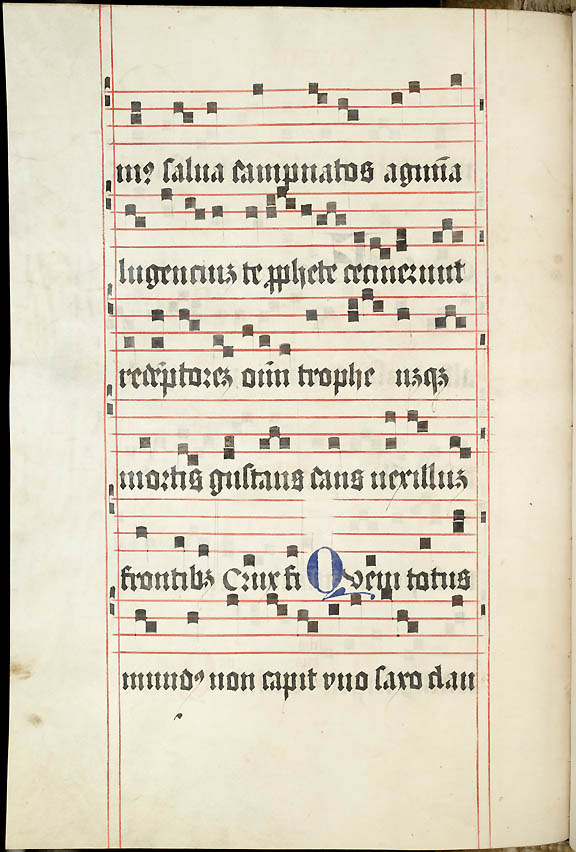 mꝰ salua campnatos agmīa
lugenciuz te ꝓphete cecinerunt
redēptorez oīm trophe uzqꝫ
mortis gustans sans uexilluz
frontibꝫ Crux fi Quem totus
mundꝰ non capit vno saxo clau